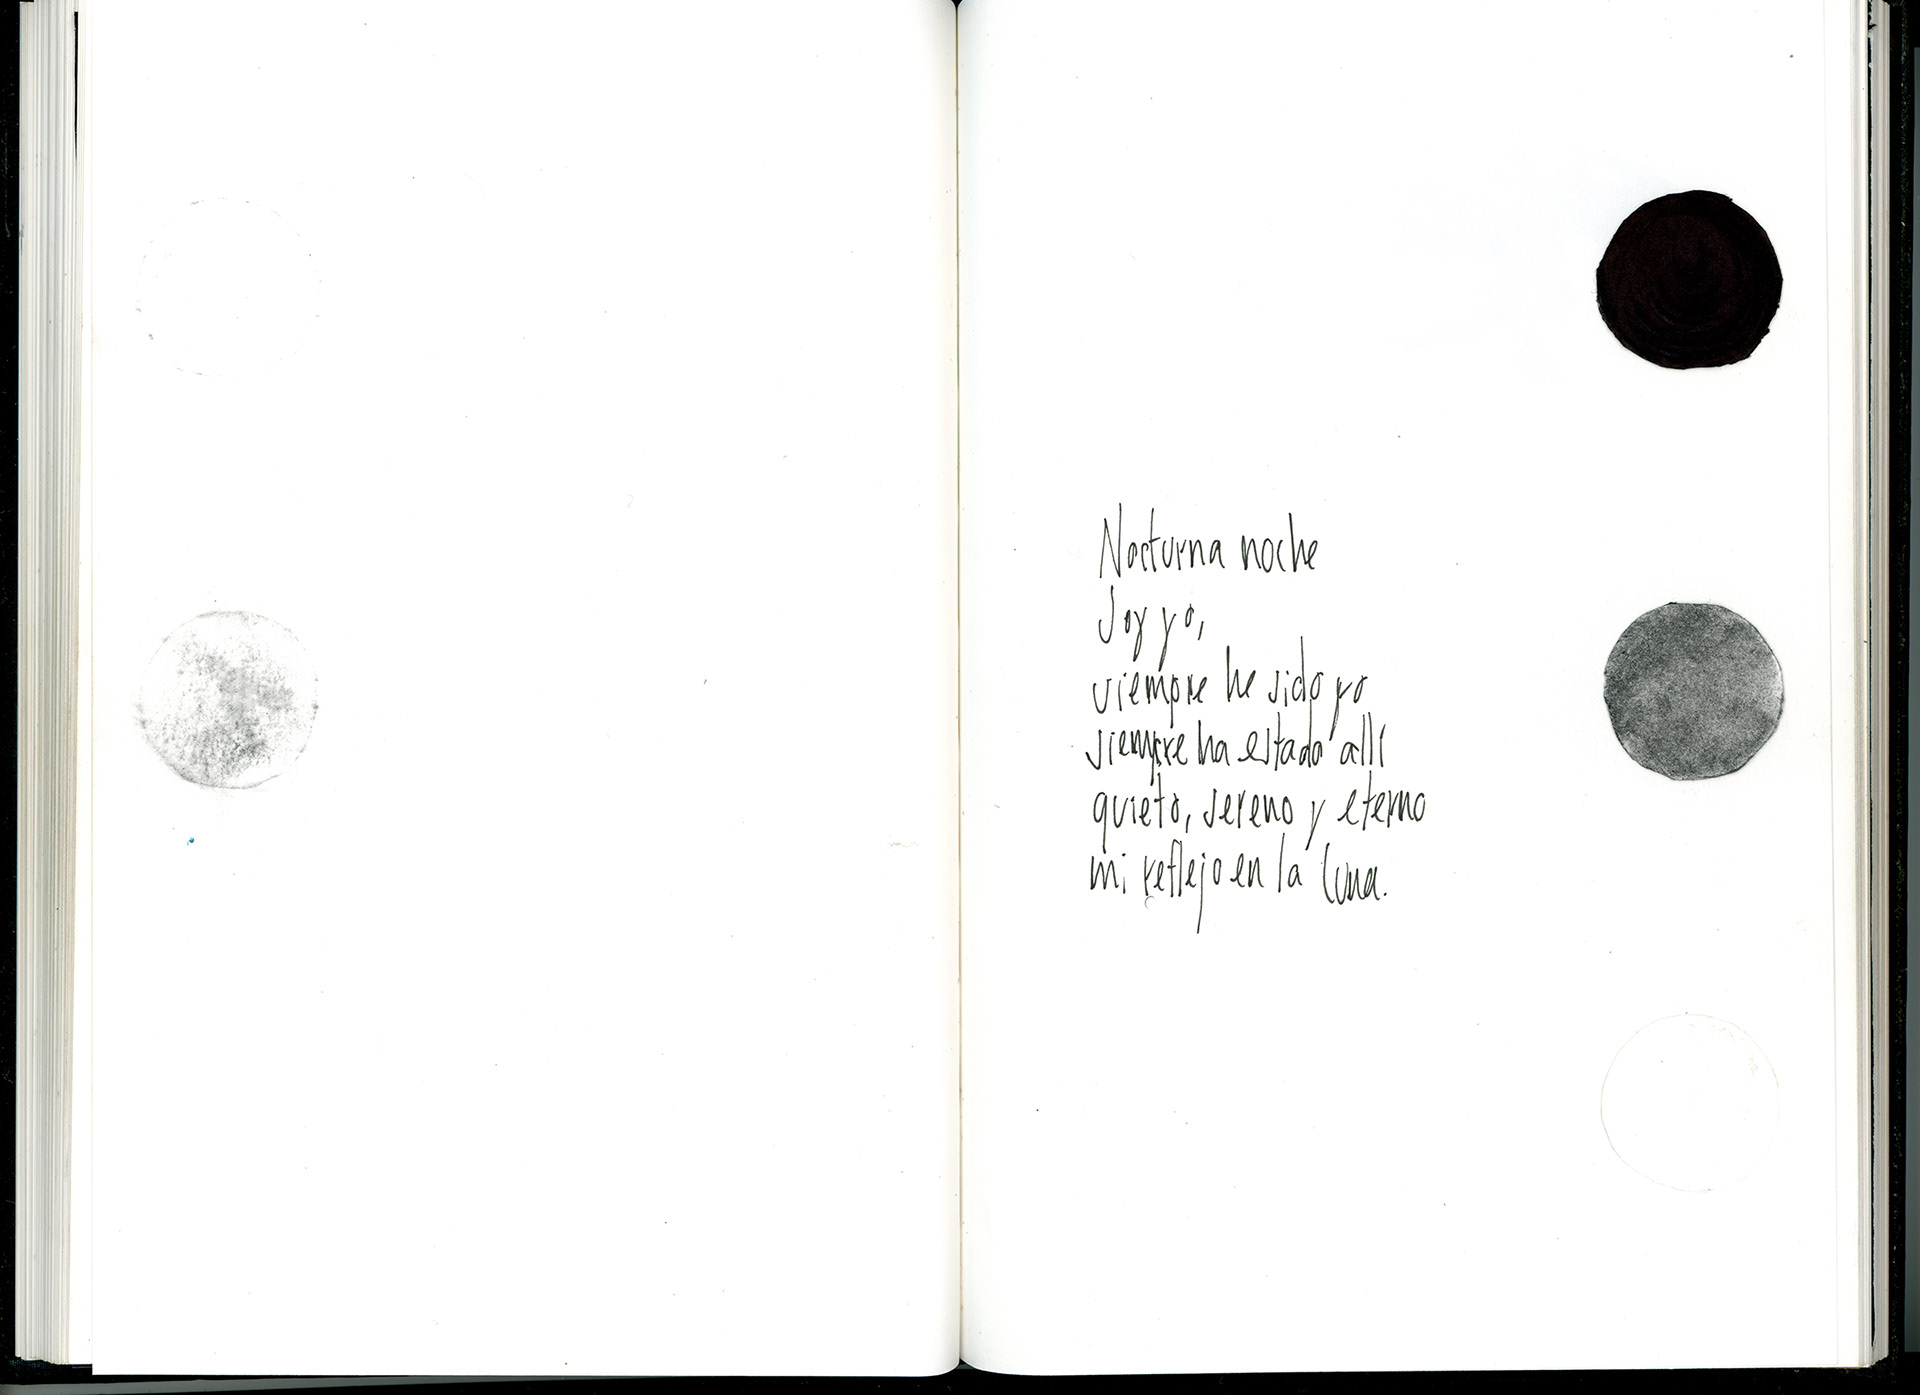 Nocturna noche
Soy yo,
siempre he sido yo
siempre ha estado allí
quieto, sereno y eterno
mi reflejo en la luna.